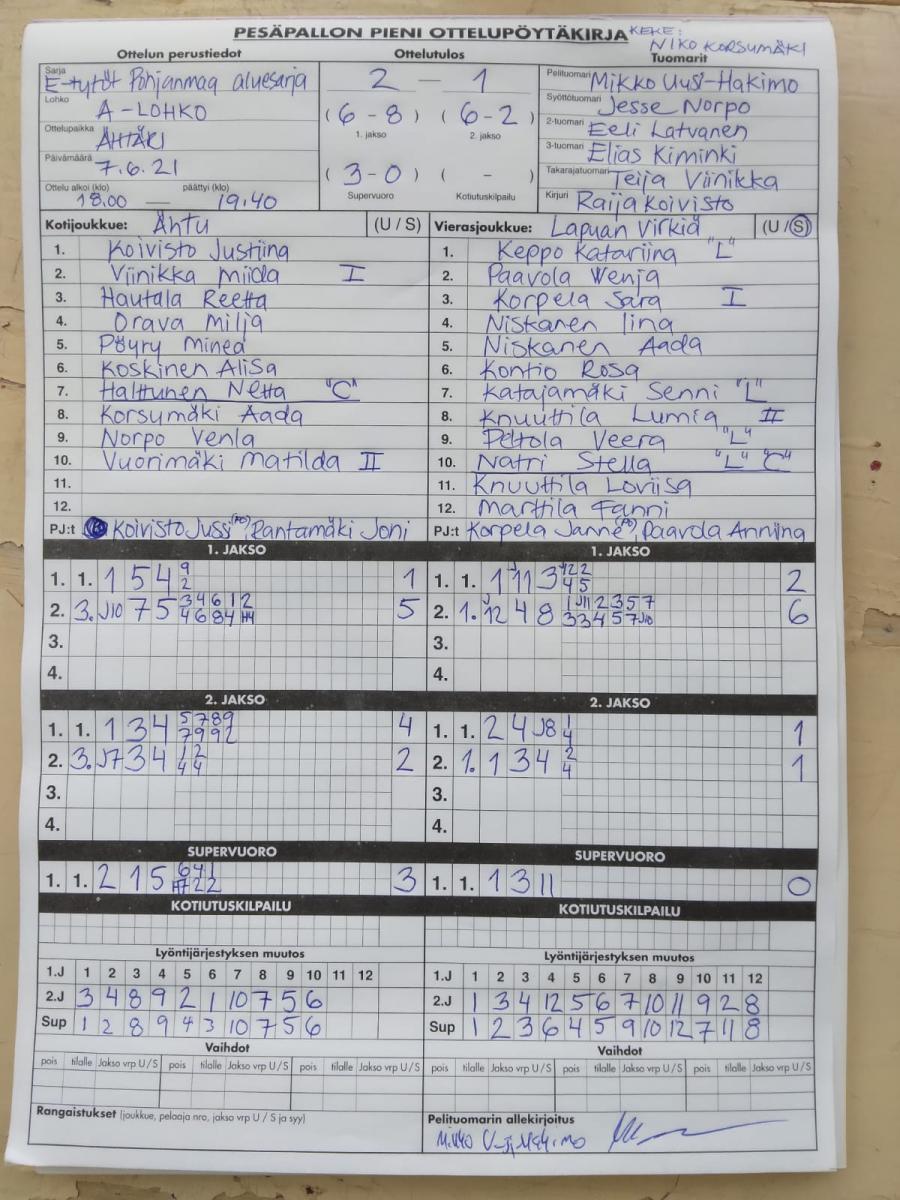 PESÄPALLON PIENI OTTELUPÖYTÄKIRJA KEKE: NIKO KORSUMÄKI
Ottelun perustiedot Ottelutulos Tuomarit
Sarja E-tytöt Pohjanmaa aluesarja
Lohko A-LOHKO
Ottelupaikka ÄHTÄRI
Päivämäärä 7.6.21
Ottelu alkoi (klo) 18.00 — päättyi (klo) 19.40
2 – 1
(6-8) (6-2)
1. jakso 2. jakso
(3-0) ( - )
Supervuoro Kotiutuskilpailu
Pelituomari Mikko Uusi-Hakimo
Syöttötuomari Jesse Norpo
2-tuomari Eeli Latvanen
3-tuomari Elias Kiminki
Takarajatuomari Teija Viinikka
Kirjuri Raija Koivisto
Kotijoukkue: ÄhTU (U / S)
1. Koivisto Justiina
2. Viinikka Miida I
3. Hautala Reetta
4. Orava Milja
5. Pöyry Minea
6. Koskinen Alisa
7. Halttunen Netta "C"
8. Korsumäki Aada
9. Norpo Venla
10. Vuorimäki Matilda II
11.
12.
PJ:t Koivisto Jussi (PO), Rantamäki Joni
Vierasjoukkue: Lapuan Virkiä (U / S)
1. Keppo Katariina "L"
2. Paavola Wenja
3. Korpela Sara I
4. Niskanen Iina
5. Niskanen Aada
6. Kontio Rosa
7. Katajamäki Senni "L"
8. Knuuttila Lumia II
9. Peltola Veera "L"
10. Natri Stella "L" "C"
11. Knuuttila Loviisa
12. Marttila Fanni
PJ:t Korpela Janne (PO), Paavola Annina
1. JAKSO
1. 1. 1 5 4 9 2 1
2. 3. J10 7 5 3 4 6 1 2 4 6 8 4 5
3.
4.
1. JAKSO
1. 1. 1 11 3 2
2. 1. 12 4 8 1 J11 2 3 5 7 3 3 4 5 7 J10 6
3.
4.
2. JAKSO
1. 1. 1 3 4 5 7 8 9 7 9 9 2 4
2. 3. J7 3 4 1 2 4 4 2
3.
4.
2. JAKSO
1. 1. 2 4 J8 1 4 1
2. 1. 1 3 4 2 4 1
3.
4.
SUPERVUORO
1. 1. 2 1 5 6 4 1 2 2 3
SUPERVUORO
1. 1. 1 3 11 0
KOTIUTUSKILPAILU
KOTIUTUSKILPAILU
Lyöntijärjestyksen muutos
1.J 1 2 3 4 5 6 7 8 9 10 11 12
2.J 3 4 8 9 2 1 10 7 5 6
Sup 1 2 8 9 4 3 10 7 5 6
Lyöntijärjestyksen muutos
1.J 1 2 3 4 5 6 7 8 9 10 11 12
2.J 1 3 4 12 5 6 7 10 11 9 2 8
Sup 1 2 3 6 4 5 9 10 12 7 11 8
Vaihdot
pois tilalle Jakso vrp U / S pois tilalle Jakso vrp U / S pois tilalle Jakso vrp U / S
Vaihdot
pois tilalle Jakso vrp U / S pois tilalle Jakso vrp U / S pois tilalle Jakso vrp U / S
Rangaistukset (joukkue, pelaaja nro, jakso vrp U / S ja syy)
Pelituomarin allekirjoitus